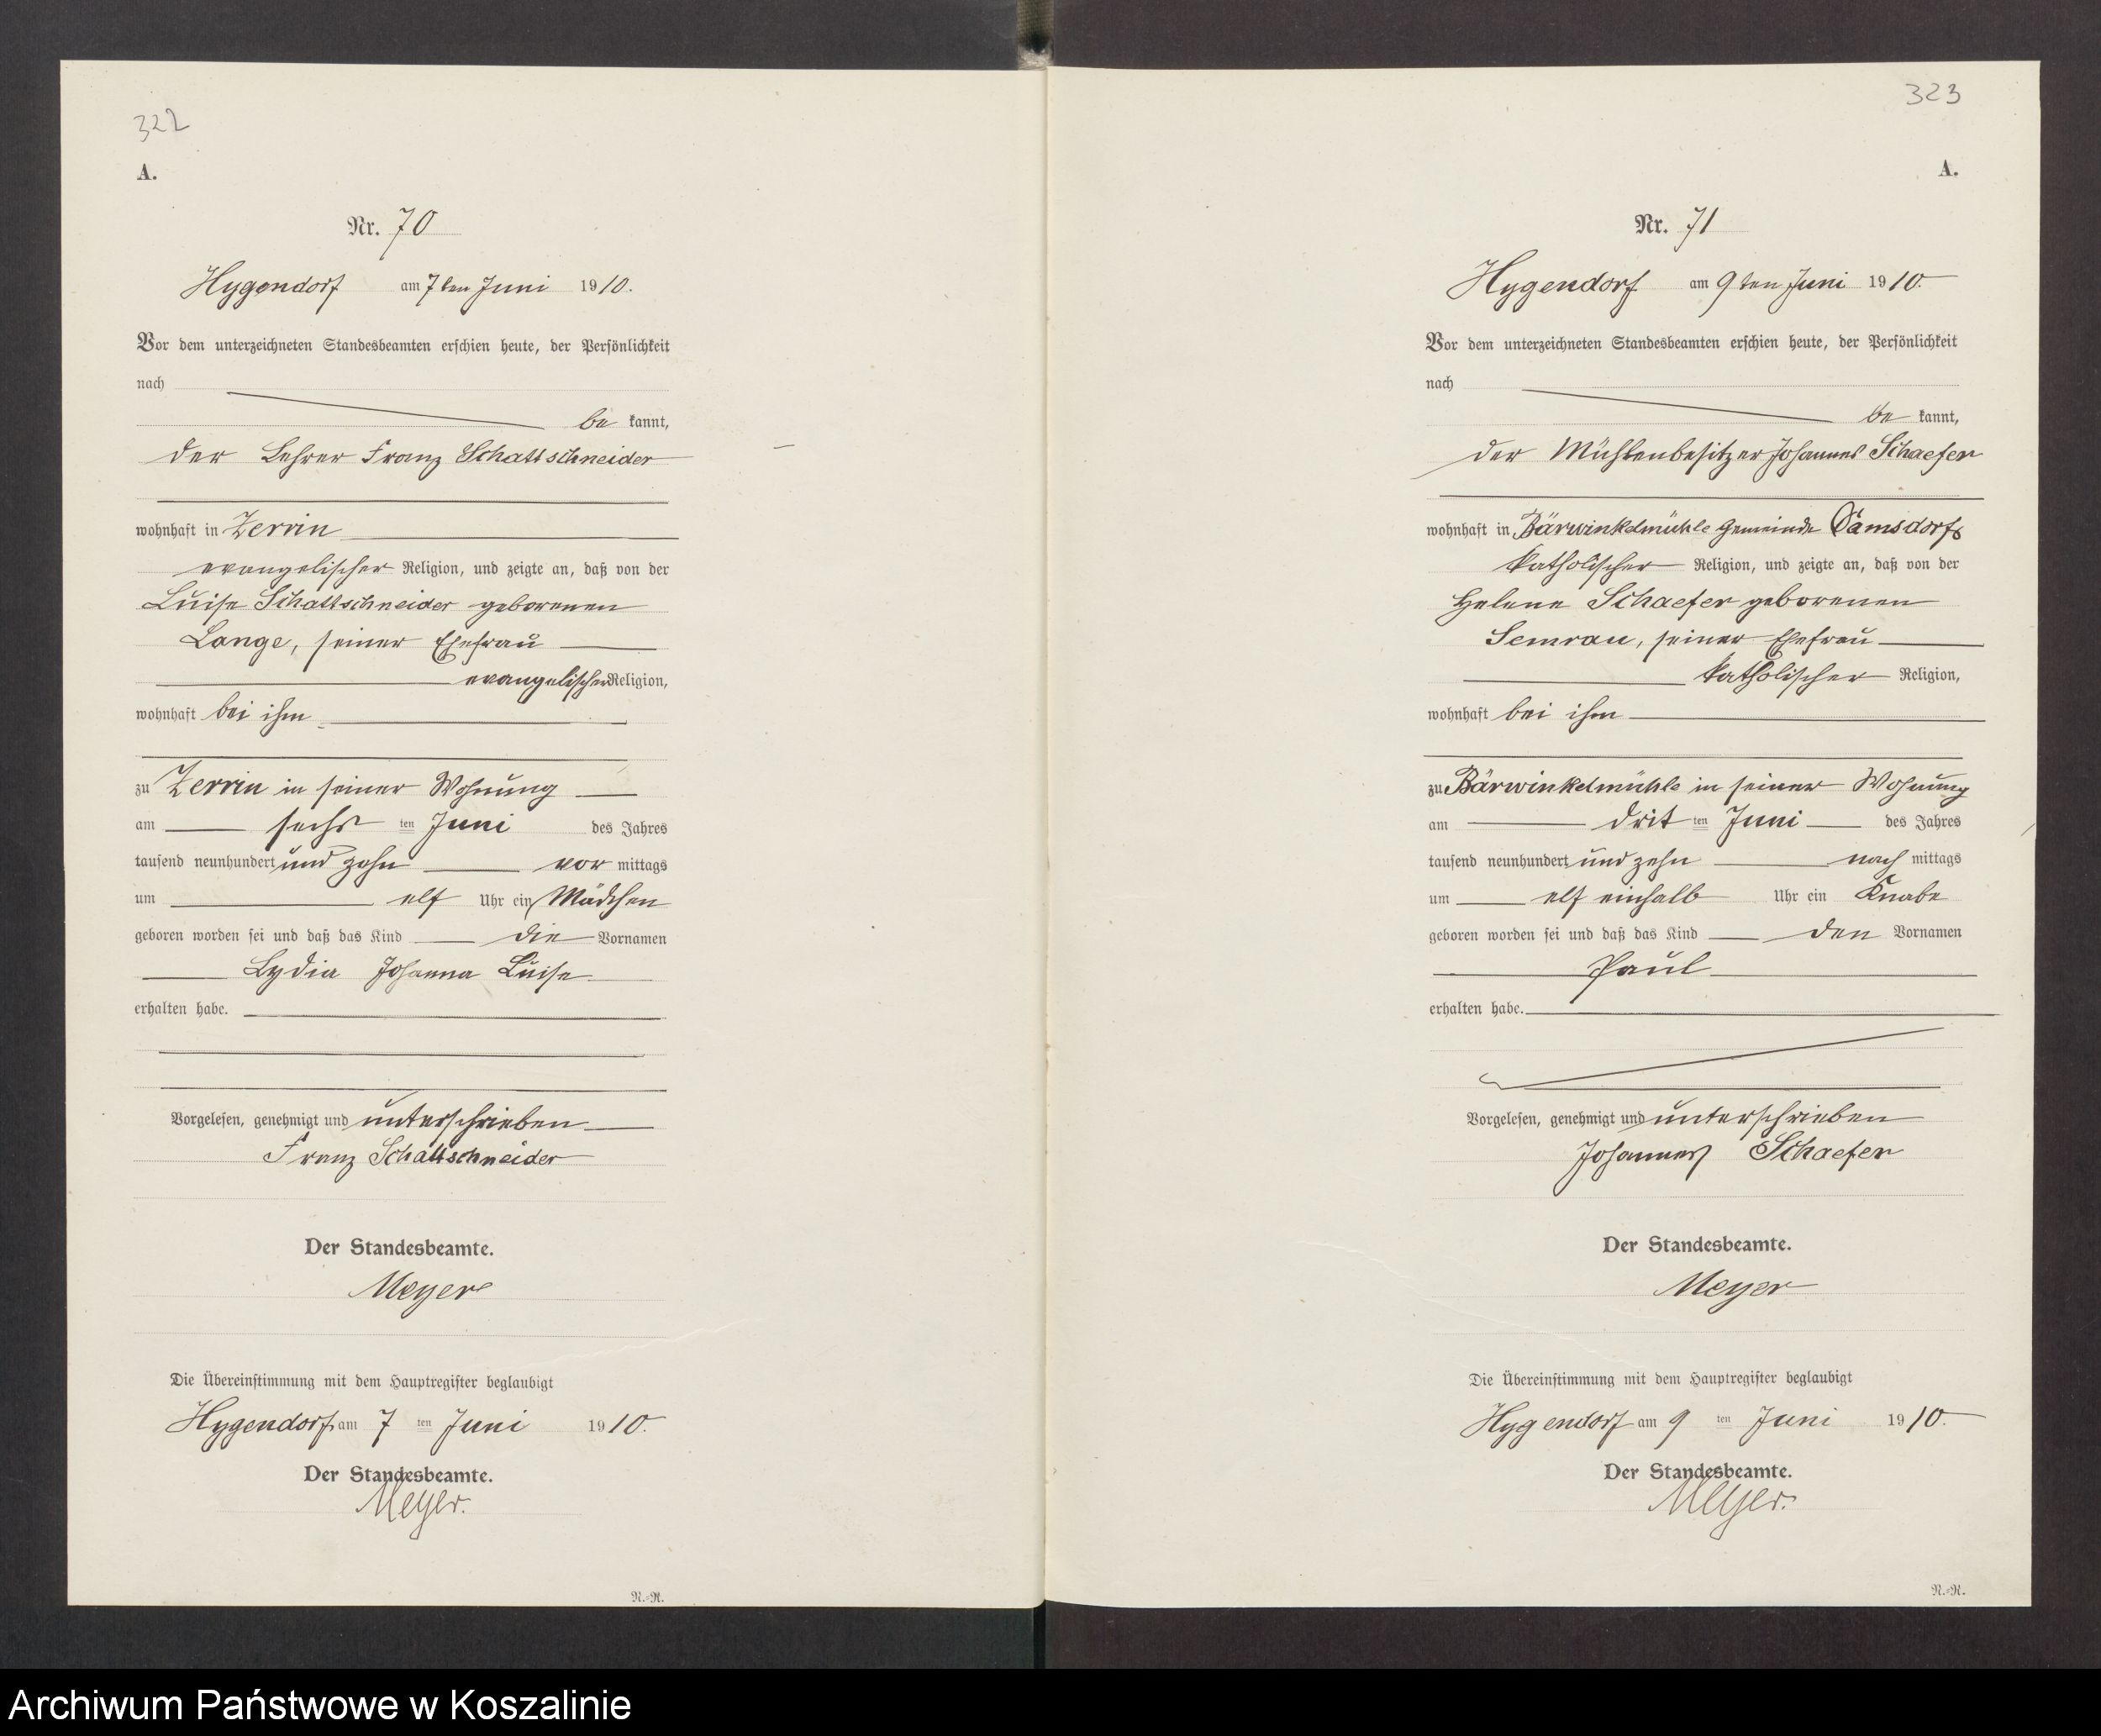 322
A.
Nr. 70
Hygendorf am 7ten Juni 1910.
Vor dem unterzeichneten Standesbeamten erschien heute, der Persönlichkeit
nach
be kannt,
der Lehrer Franz Schattschneider
wohnhaft in Zerrin
evangelischer Religion, und zeigte an, daß von der
Luise Schattschneider geborenen
Lange, seiner Ehefrau
evangelischer Religion,
wohnhaft bei ihm
zu Zerrin in seiner Wohnung
am sechs ten Juni des Jahres
tausend neunhundert und zehn vor mittags
um elf Uhr ein Mädchen
geboren worden sei und daß das Kind die Vornamen
Lydia Johanna Luise
erhalten habe.
Vorgelesen, genehmigt und unterschrieben
Franz Schattschneider
Der Standesbeamte.
Meyer
Die Übereinstimmung mit dem Hauptregister beglaubigt
Hygendorf am 7 ten Juni 1910.
Der Standesbeamte.
Meyer.
N.-R.
323
A.
Nr. 71
Hygendorf am 9ten Juni 1910.
Vor dem unterzeichneten Standesbeamten erschien heute, der Persönlichkeit
nach
be kannt,
der Mühlenbesitzer Johannes Schaefer
wohnhaft in Bärwinkelmühle Gemeinde Damsdorf
katholischer Religion, und zeigte an, daß von der
Helene Schaefer geborenen
Semrau, seiner Ehefrau
katholischer Religion,
wohnhaft bei ihm
zu Bärwinkelmühle in seiner Wohnung
am drit ten Juni des Jahres
tausend neunhundert und zehn nach mittags
um elf einhalb Uhr ein Knabe
geboren worden sei und daß das Kind den Vornamen
Paul
erhalten habe.
Vorgelesen, genehmigt und unterschrieben
Johannes Schaefer
Der Standesbeamte.
Meyer
Die Übereinstimmung mit dem Hauptregister beglaubigt
Hygendorf am 9 ten Juni 1910.
Der Standesbeamte.
Meyer.
N.-R.
Archiwum Państwowe w Koszalinie